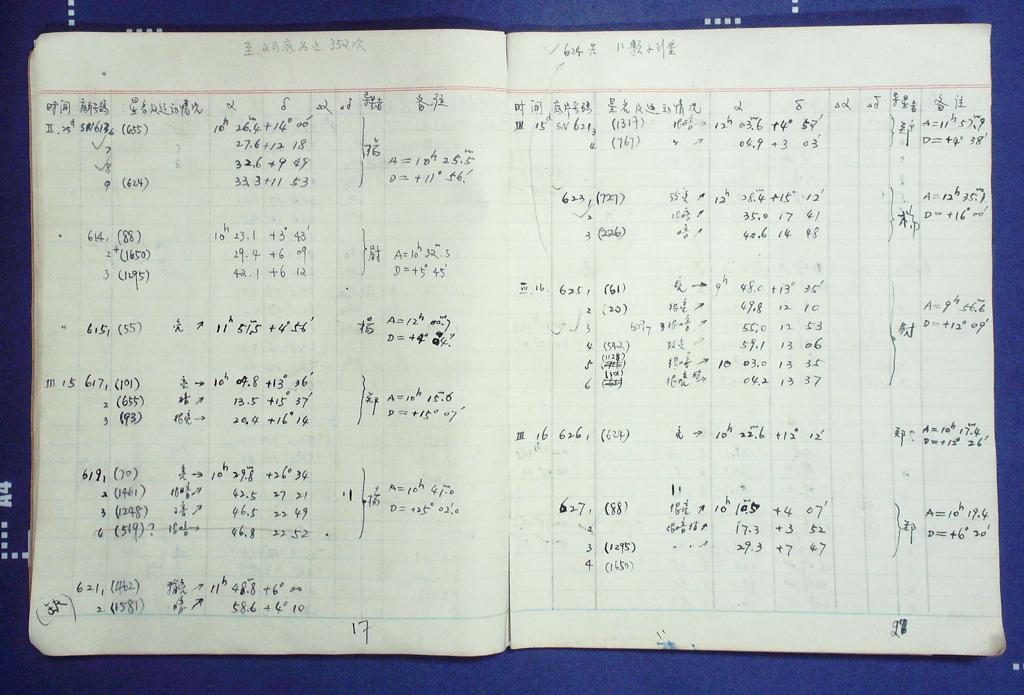 至 2月底为止 352次
时间 底片号码 星名及运动情况 α δ Δα Δδ 导星者 备注
II. 25d SN613 6 (655) 10h 26.4m +14° 00′
7 27.6 +12 18
8 32.6 +9 49 A = 10h 25.5m
9 (624) 33.3 +11 53 D = +11° 56′
614 1 (88) 10h 23.1 +3° 43′
2 (1650) 29.4 +6 09 A = 10h 32m.5
3 (1295) 42.1 +6 12 D = +5° 45′
615 1 (55) 亮 ↗ 11h 51m.5 +4° 56′ 杨 A = 12h 00m.7
III 15 617 1 (101) 亮 → 10h 09.8m +13° 36′
2 (655) 暗 ↗ 13.5 +15° 37′ 郑 A = 10h 15m.6
3 (93) 很亮 → 20.4 +16° 14 D = +15° 07′
619 1 (70) 亮 → 10h 29m.8 +26° 34
2 (1461) 很暗 ↗ 42.5 27 21 杨 A = 10h 41m.0
3 (1248) 暗 ↗ 46.5 22 49 D = +25° 02′.0
4 (519)? 很暗 → 46.8 22 52
621 1 (462) 稍亮 ↗ 11h 48m.8 +6° 00
2 (1581) 暗 ↗ 58.6 +4° 10
17
624 共 11 颗小行星
时间 底片号码 星名及运动情况 α δ Δα Δδ 导星者 备注
III 15d SN 621 3 (1317) 很暗 → 12h 03m.6 +4° 57′ 郑 A = 11h 57m.9
4 (767) 〃 ↗ 04.9 +3 03′ D = +4° 38′
623 1 (727) 较亮 ↗ 12h 28m.4 +15° 12′ A = 12h 35m.1
2 很暗 ↗ 35.0 17 41 杨 D = +16° 00′
3 (226) 暗 ↗ 40.6 14 48
III. 16. 625 1 (61) 亮 → 9h 48.0m +13° 35′
2 (20) 很亮 ↗ 49.8 12 10 A = 9h 56m.6
3 很暗 ↗ 55.0 12 53 D = +12° 09′
4 (542) 较亮 ↗ 59.1 13 06
5 (1128) 很暗 ↗ 10 03.0 13 35
6 04.2 13 37
III 16 626 1 (624) 亮 → 10h 22m.6 +12° 12′ 郑 A = 10h 17m.4
D = +12° 26′
627 1 (88) 很亮 ↗ 10h +4 07′
2 很暗 ↗ 17.3 +3 52 郑 A = 10h 19m.4
3 (1295) 〃 ↗ 29.3 +7 47 D = +6° 20′
4 (1650)